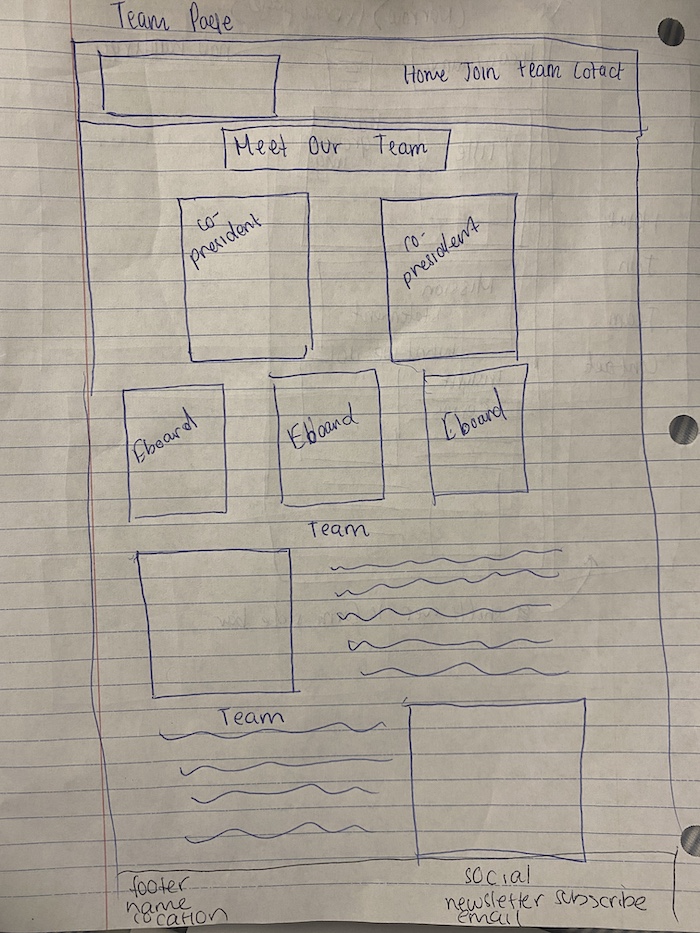 Team Page
Home Join team Cotact
Meet Our Team
co-
president
co-
president
Eboard
Eboard
Eboard
Team
Team
footer
name
location
social
newsletter subscribe
email